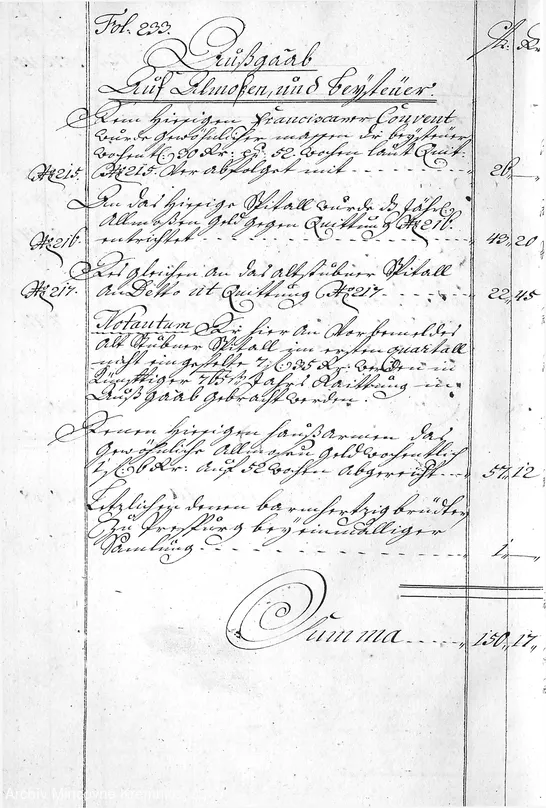 Fol. 233.
Außgaab
Auf Allmosen, und beysteüer.
fl: Kr:
Dem Hießigen Franciscaner Convent
wurde gewöhnlicher massen die beysteüer
wochentl. 30 Kr: pr: 52 wochen laut Quit:
No 215. No 215 Verabfolget mit - - - 26 „ —
An das Hießige Spitall wurde das Jährl.
Allmosen Geld gegen Quittung No 216.
No 216. entrichtet - - - 43 „ 20
Desgleichen An das Altstubner Spitall
No 217. An Detto at Quittung No 217 - - - 22 „ 45
Notandum Die hier An Vorbemeldes
Alt Stubner Spitall im ersten quartall
nicht eingestelte 7 fl. 35 Kr: werden in
Künfftiger Jahrs Raittung in
Außgaab gebracht werden.
Denen Hießigen haußarmen das
gewöhnliche Allmosen Geld wochentlich
1 fl. 6 Kr: auf 52 wochen Abgereicht - - - 57 „ 12
Letzlichen denen barmhertzig brüdern
zu Pressburg bey einmalliger
Samlung - - - 1 „ —
Summa - - - 150 „ 17 „
Archiv